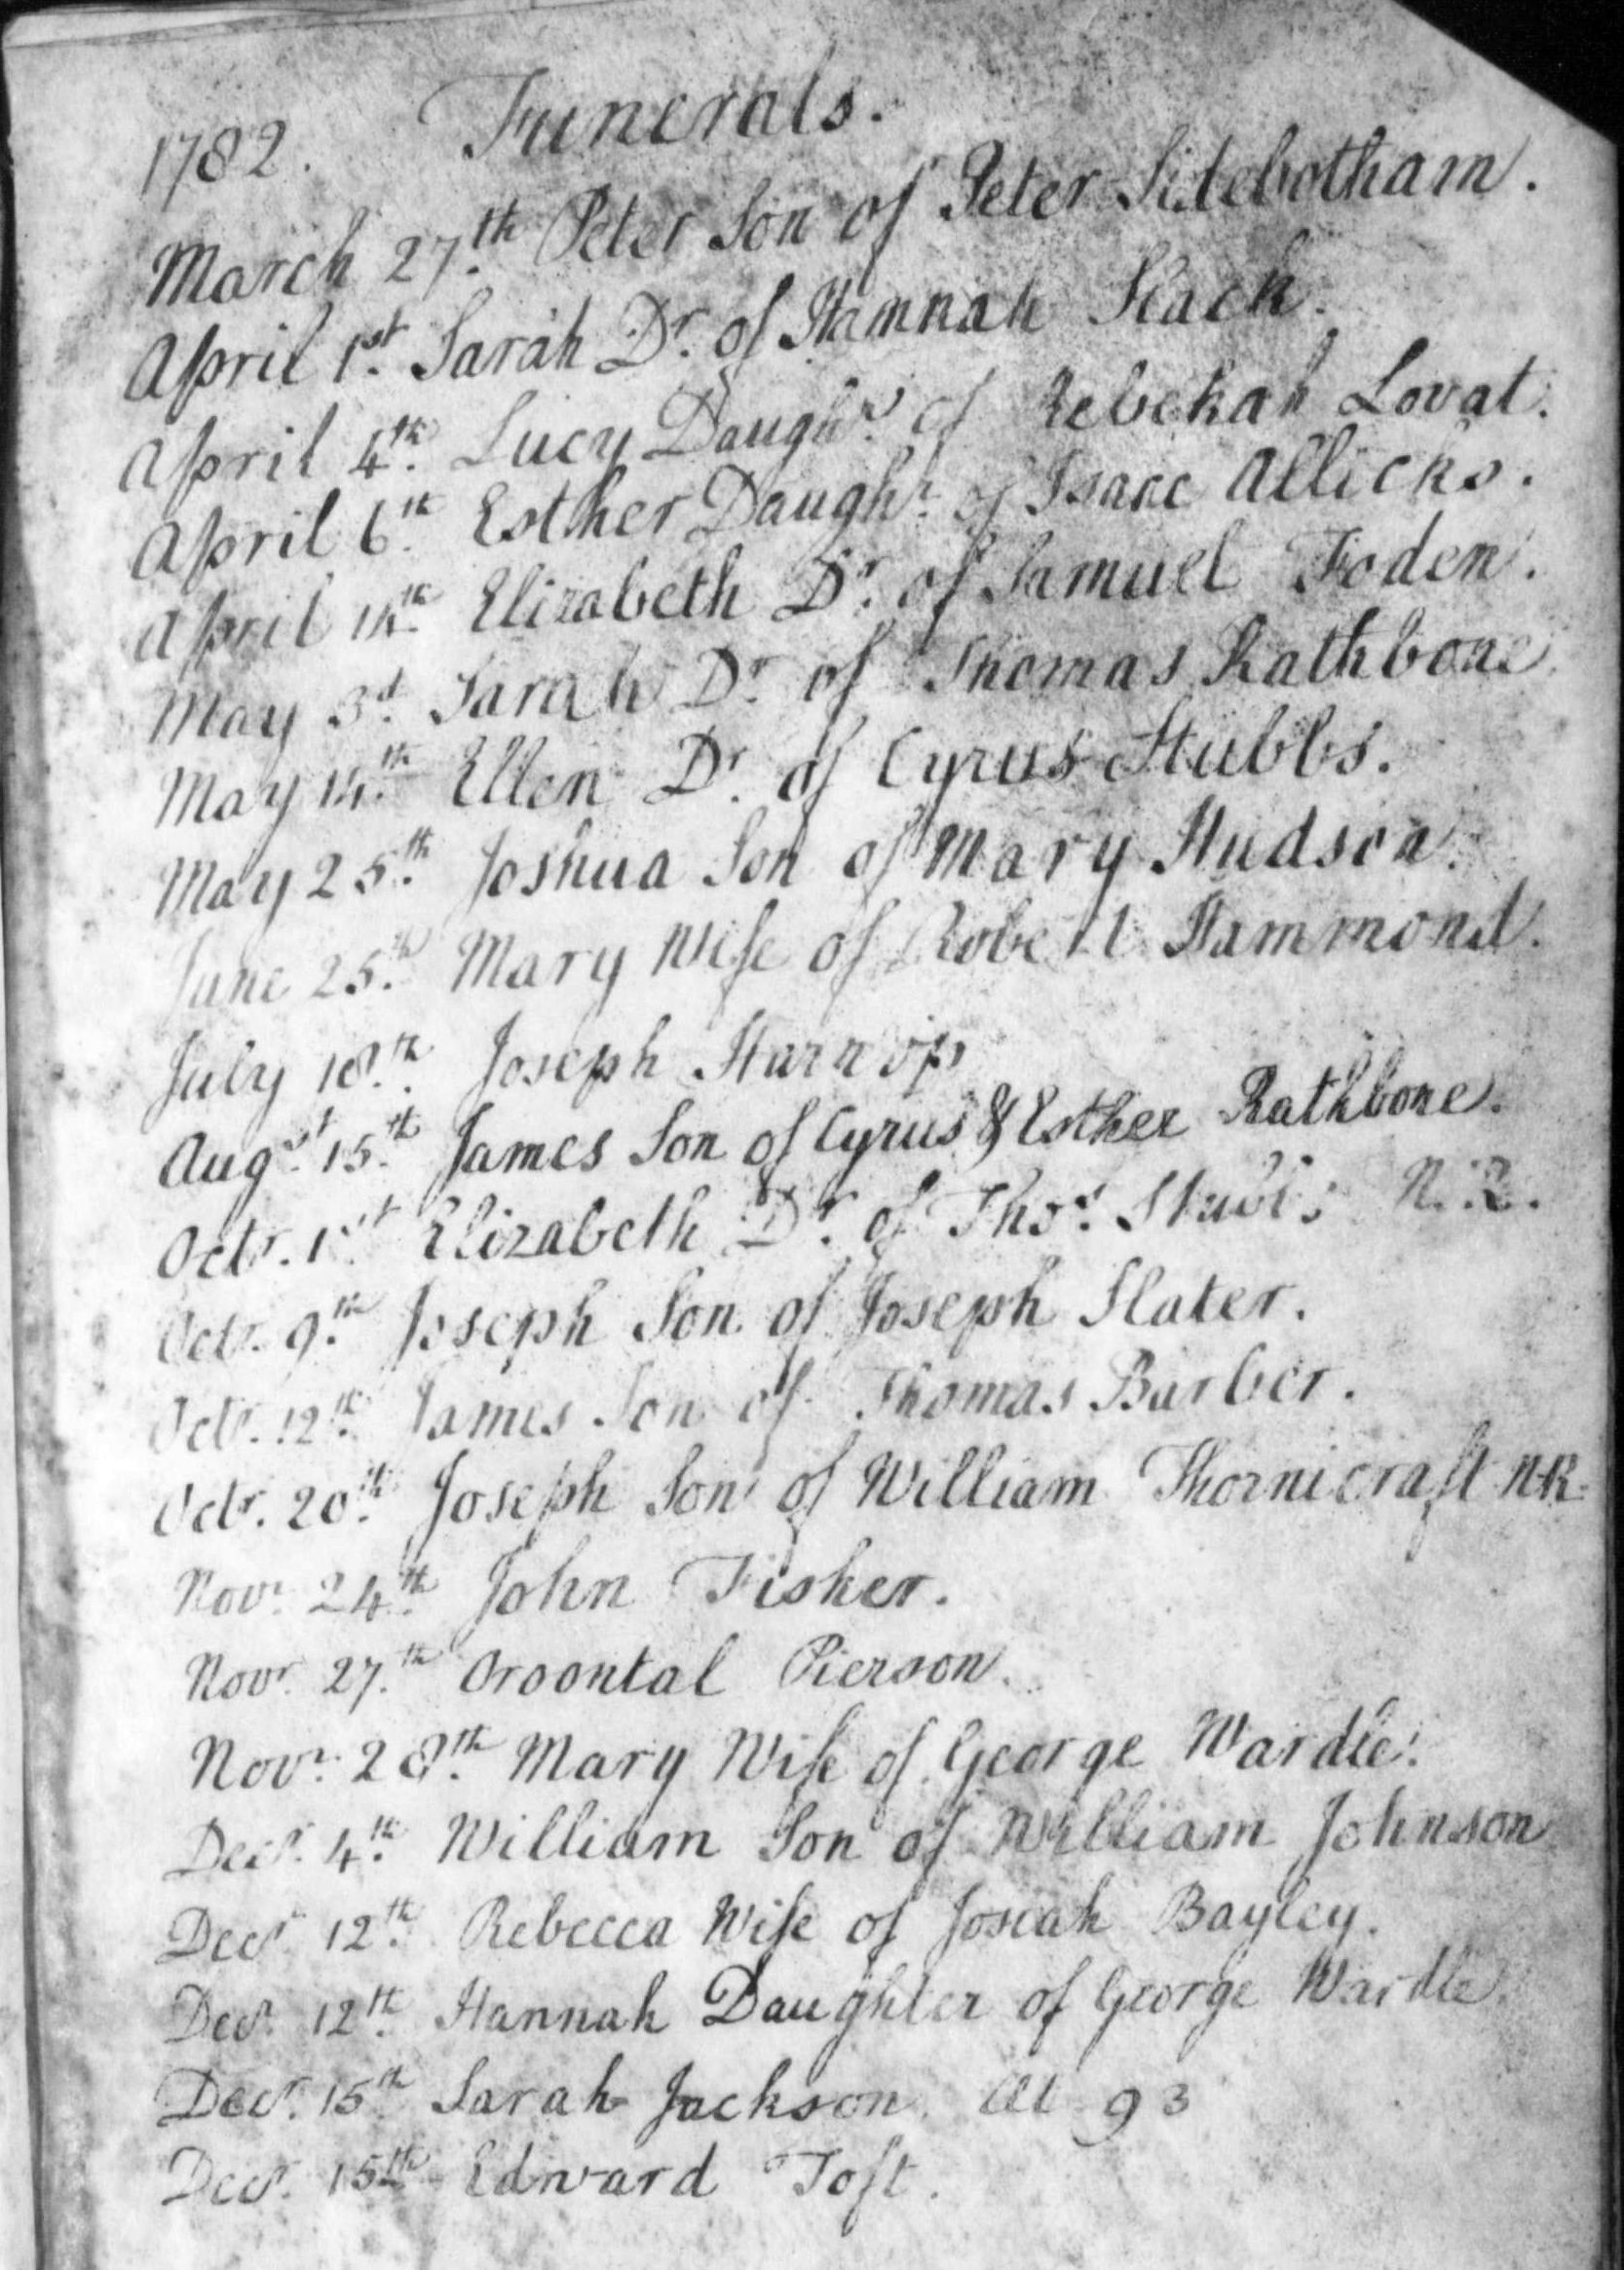 1782. Funerals.
March 27.th Peter Son of Peter Sidebotham.
April 1.st Sarah Dr. of Hannah Slach.
April 4.th Lucy Daughr. of Rebekah Lovat.
April 6.th Esther Daughr. of Isaac Allicks.
April 14.th Elizabeth Dr. of Samuel Foden.
May 3.d Sarah Dr. of Thomas Rathbone
May 14.th Ellen Dr. of Cyrus Stubbs.
May 25.th Joshua Son of Mary Hudson.
June 25.th Mary Wife of Robert Hammond.
July 18.th Joseph Harrop
Augst. 15.th James Son of Cyrus & Esther Rathbone.
Octr. 1st Elizabeth Dr. of Thos. Stubbs N.R.
Octr. 9.th Joseph Son of Joseph Slater.
Octr. 12.th James Son of Thomas Barber.
Octr. 20.th Joseph Son of William Thornicraft NR.
Novr. 24.th John Fisher.
Novr. 27.th Oroontal Pierson.
Novr. 28.th Mary Wife of George Wardle.
Decr. 4.th William Son of William Johnson
Decr. 12.th Rebecca Wife of Josiah Bayley.
Decr. 12.th Hannah Daughter of George Wardle.
Decr. 15th Sarah Jackson. Æt 93
Decr. 15th Edward Toft.